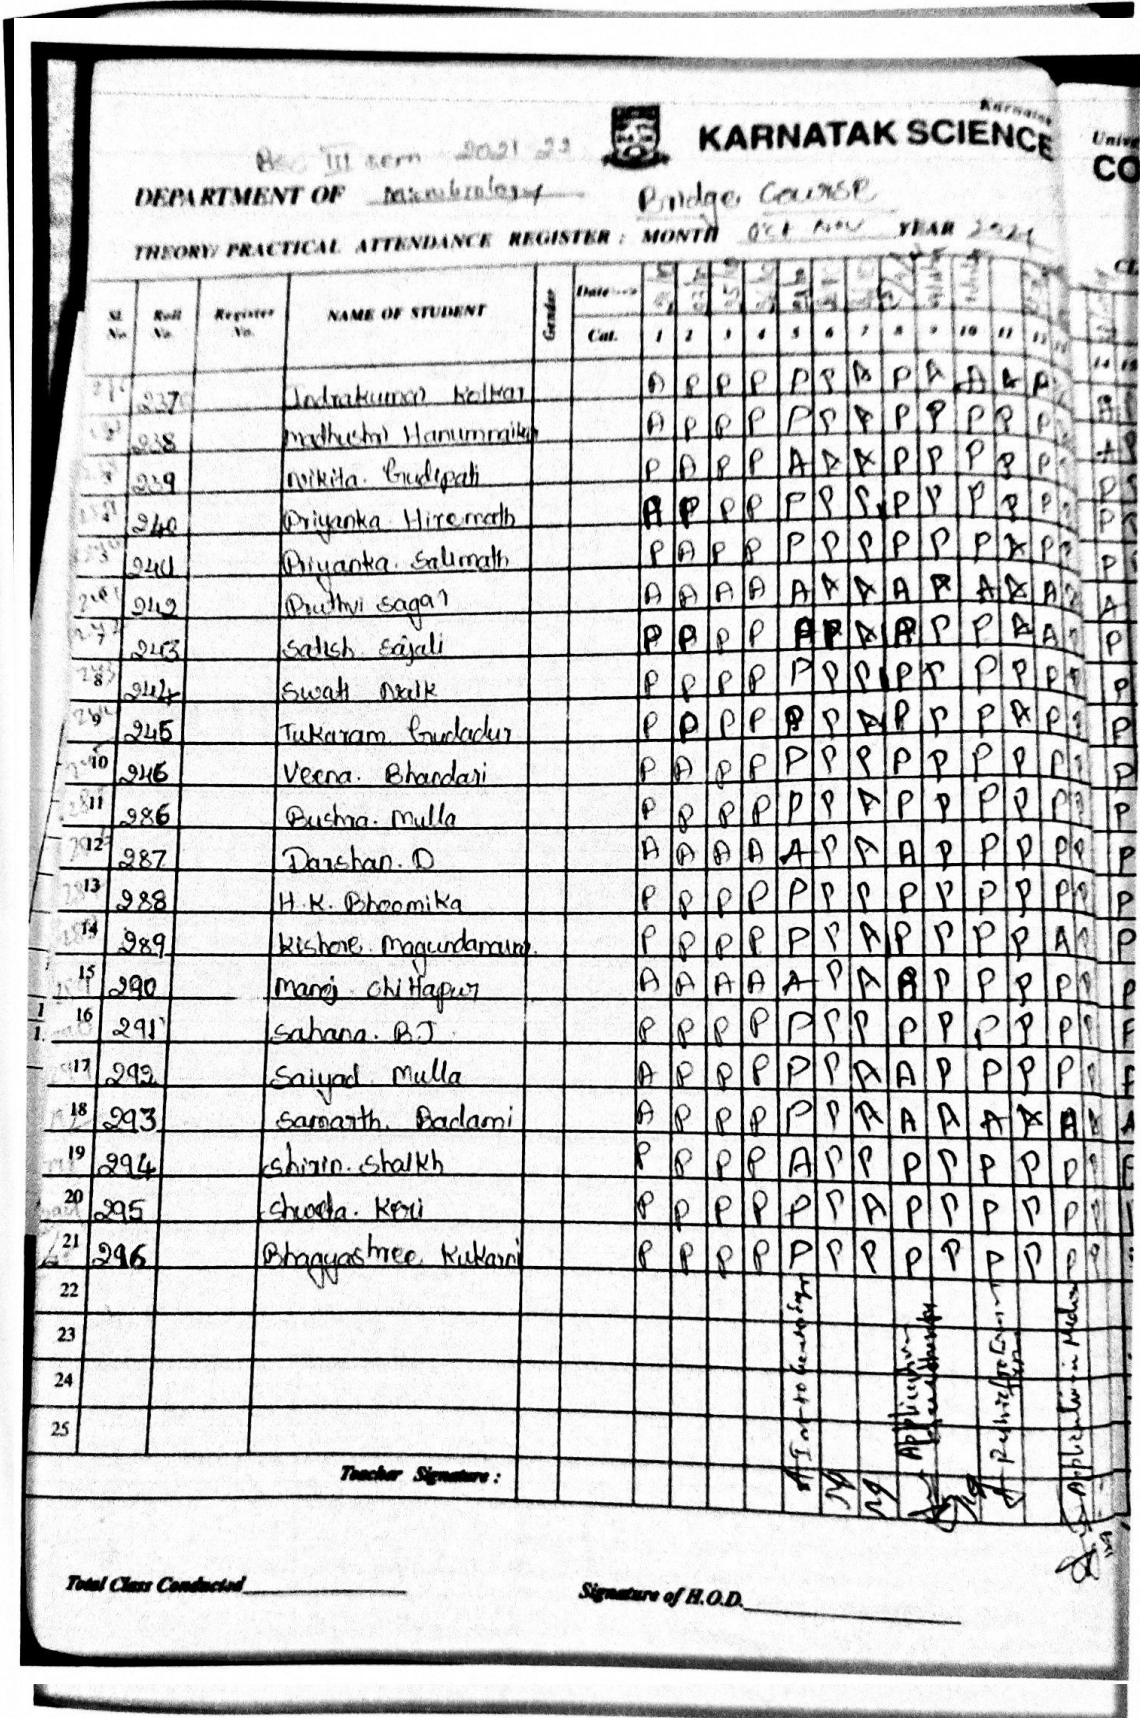 Karnatak
KARNATAK SCIENCE
Univer
CO
BSc III sem 2021 22
DEPARTMENT OF Microbiology Bridge Course
THEORY/ PRACTICAL ATTENDANCE REGISTER : MONTH Oct Nov YEAR 2021
Sl. No. Roll No. Register No. NAME OF STUDENT Gender Date
Cat. 1 2 3 4 5 6 7 8 9 10 11 12 13 14 15
237 Indrakumar Kolkar A P P P P P A P A A A P
238 Madhushri Hanummaikar A P P P P P A P P P P P
239 Nikita. Gudipati P A P P A A A P P P P P
240 Priyanka Hiremath A P P P P P P P P P P P
241 Priyanka. Salimath P A P P P P P P P P A P
242 Pruthvi Sagar A A A A A A A A A A A A
243 Satish. Sajali P P P P A P A A P P A A
8 244 Swati Naik P P P P P P P P P P P P
9 245 Tukaram Gudadur P P P P P P A P P P A P
10 246 Veena. Bhandari P A P P P P P P P P P P
11 286 Bushra. Mulla P P P P P P A P P P P P
12 287 Darshan. D A A A A A P A A P P P P
13 288 H.K. Bhoomika P P P P P P P P P P P P
14 289 Kishore. Magundanavar. P P P P P P A P P P P A
15 290 Manoj Chittapur A A A A A P A A P P P P
16 291 Sahana. B.J. P P P P P P P P P P P P
17 292 Saiyad Mulla A P P P P P A A P P P P
18 293 Samarth. Badami A P P P P P A A A A A A
19 294 Shirin. Shaikh P P P P A P P P P P P P
20 295 Shweta. Kori P P P P P P A P P P P P
21 296 Bhagyashree Kukarni P P P P P P P P P P P P
22
23
24
25
Teacher Signature :
Total Class Conducted
Signature of H.O.D.